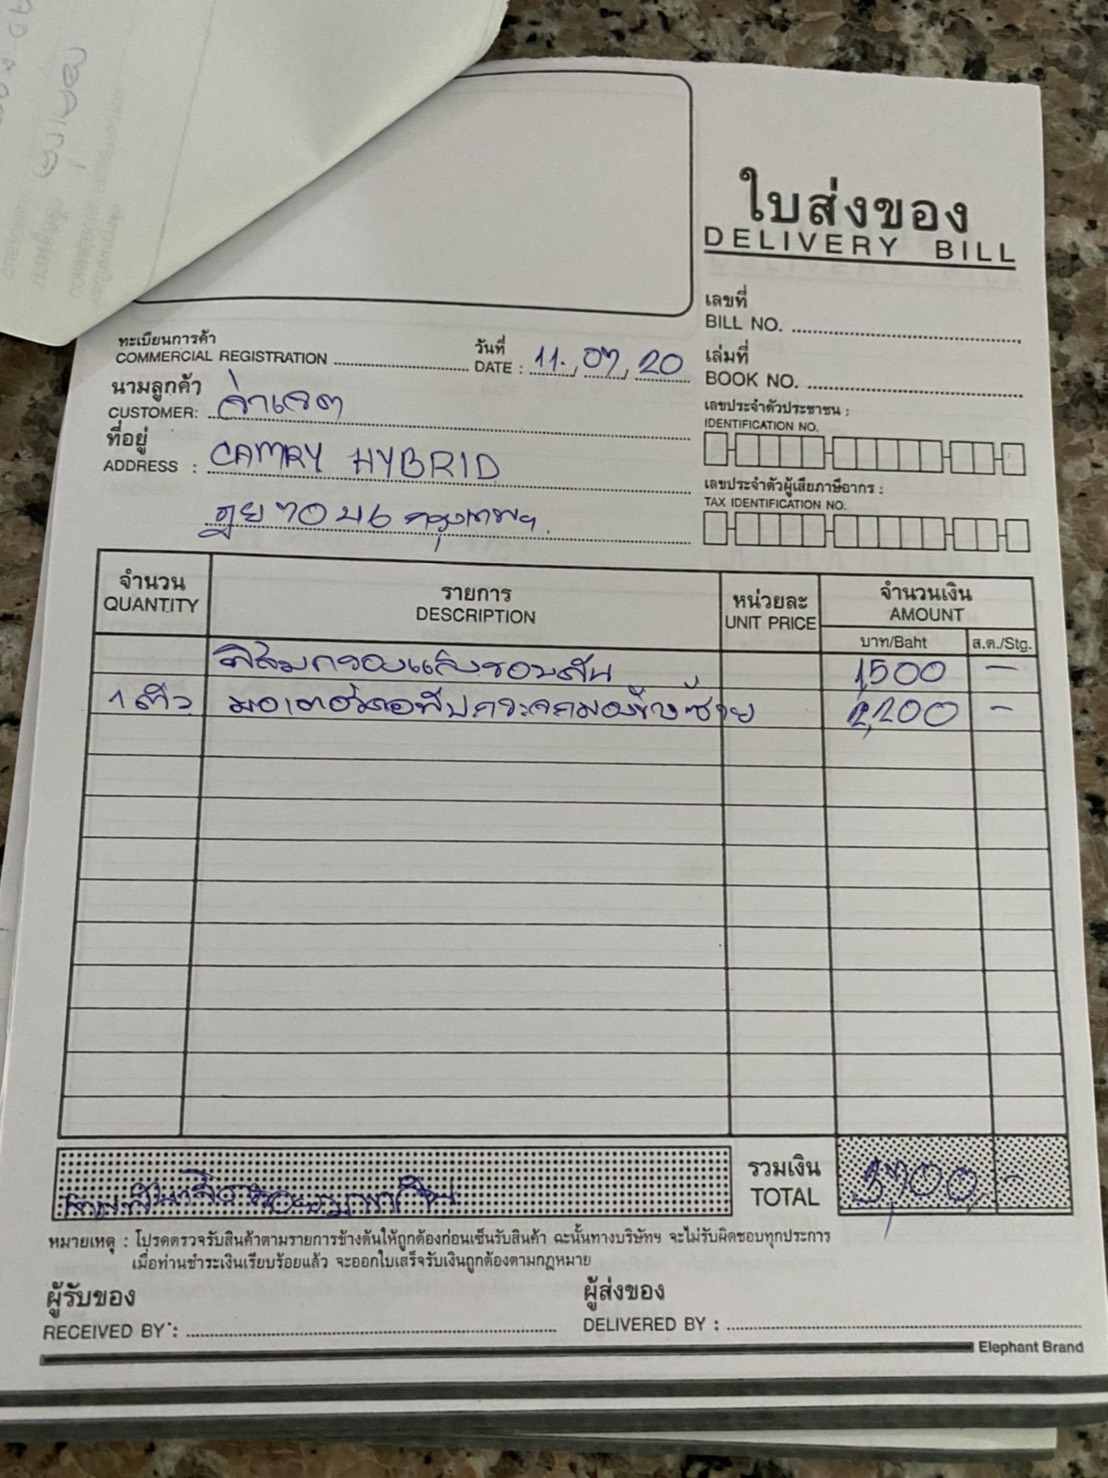 ใบส่งของ
DELIVERY BILL
เลขที่
BILL NO.
ทะเบียนการค้า
COMMERCIAL REGISTRATION
วันที่
DATE : 11, 07, 20
เล่มที่
BOOK NO.
นามลูกค้า
CUSTOMER: จ่าเจต
ที่อยู่
ADDRESS : CAMRY HYBRID
7046 กรุงเทพฯ.
เลขประจำตัวประชาชน :
IDENTIFICATION NO.
เลขประจำตัวผู้เสียภาษีอากร :
TAX IDENTIFICATION NO.
จำนวน รายการ หน่วยละ จำนวนเงิน
QUANTITY DESCRIPTION UNIT PRICE AMOUNT
บาท/Baht ส.ต./Stg.
ฟิล์มกรองแสงรอบคัน 1,500 -
1 ตัว มอเตอร์ กระจกมองข้างซ้าย 2,200 -
รวมเงิน
TOTAL 3,700 -
สามพันเจ็ดร้อยบาท
หมายเหตุ : โปรดตรวจรับสินค้าตามรายการข้างต้นให้ถูกต้องก่อนเซ็นรับสินค้า ฉะนั้นทางบริษัทฯ จะไม่รับผิดชอบทุกประการ
เมื่อท่านชำระเงินเรียบร้อยแล้ว จะออกใบเสร็จรับเงินถูกต้องตามกฎหมาย
ผู้รับของ
RECEIVED BY :
ผู้ส่งของ
DELIVERED BY :
Elephant Brand